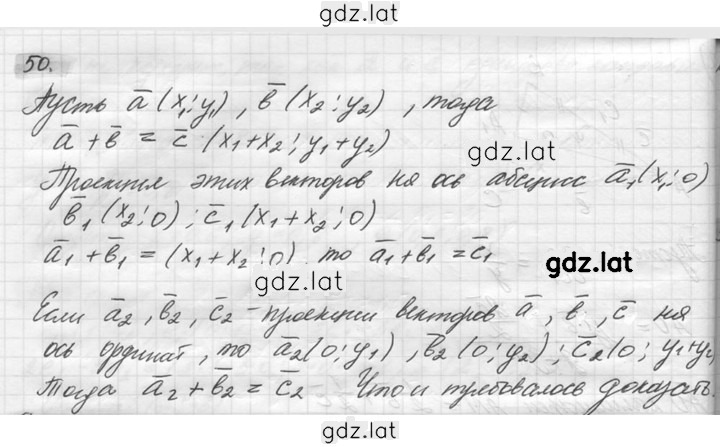 gdz.lat
50.
Пусть a̅ (x₁; y₁), b̅ (x₂; y₂), тогда
a̅ + b̅ = c̅ (x₁+x₂; y₁+y₂)
gdz.lat
Проекции этих векторов на ось абсцисс a̅₁(x₁; 0)
b̅₁(x₂; 0); c̅₁(x₁+x₂; 0)
a̅₁ + b̅₁ = (x₁+x₂; 0) то a̅₁+b̅₁ = c̅₁
gdz.lat
gdz.lat
Если a̅₂, b̅₂, c̅₂ - проекции векторов a̅, b̅, c̅ на
ось ординат, то a̅₂(0; y₁), b̅₂(0; y₂); c̅₂(0; y₁+y₂
Тогда a̅₂ + b̅₂ = c̅₂ Что и требовалось доказать.
gdz.lat